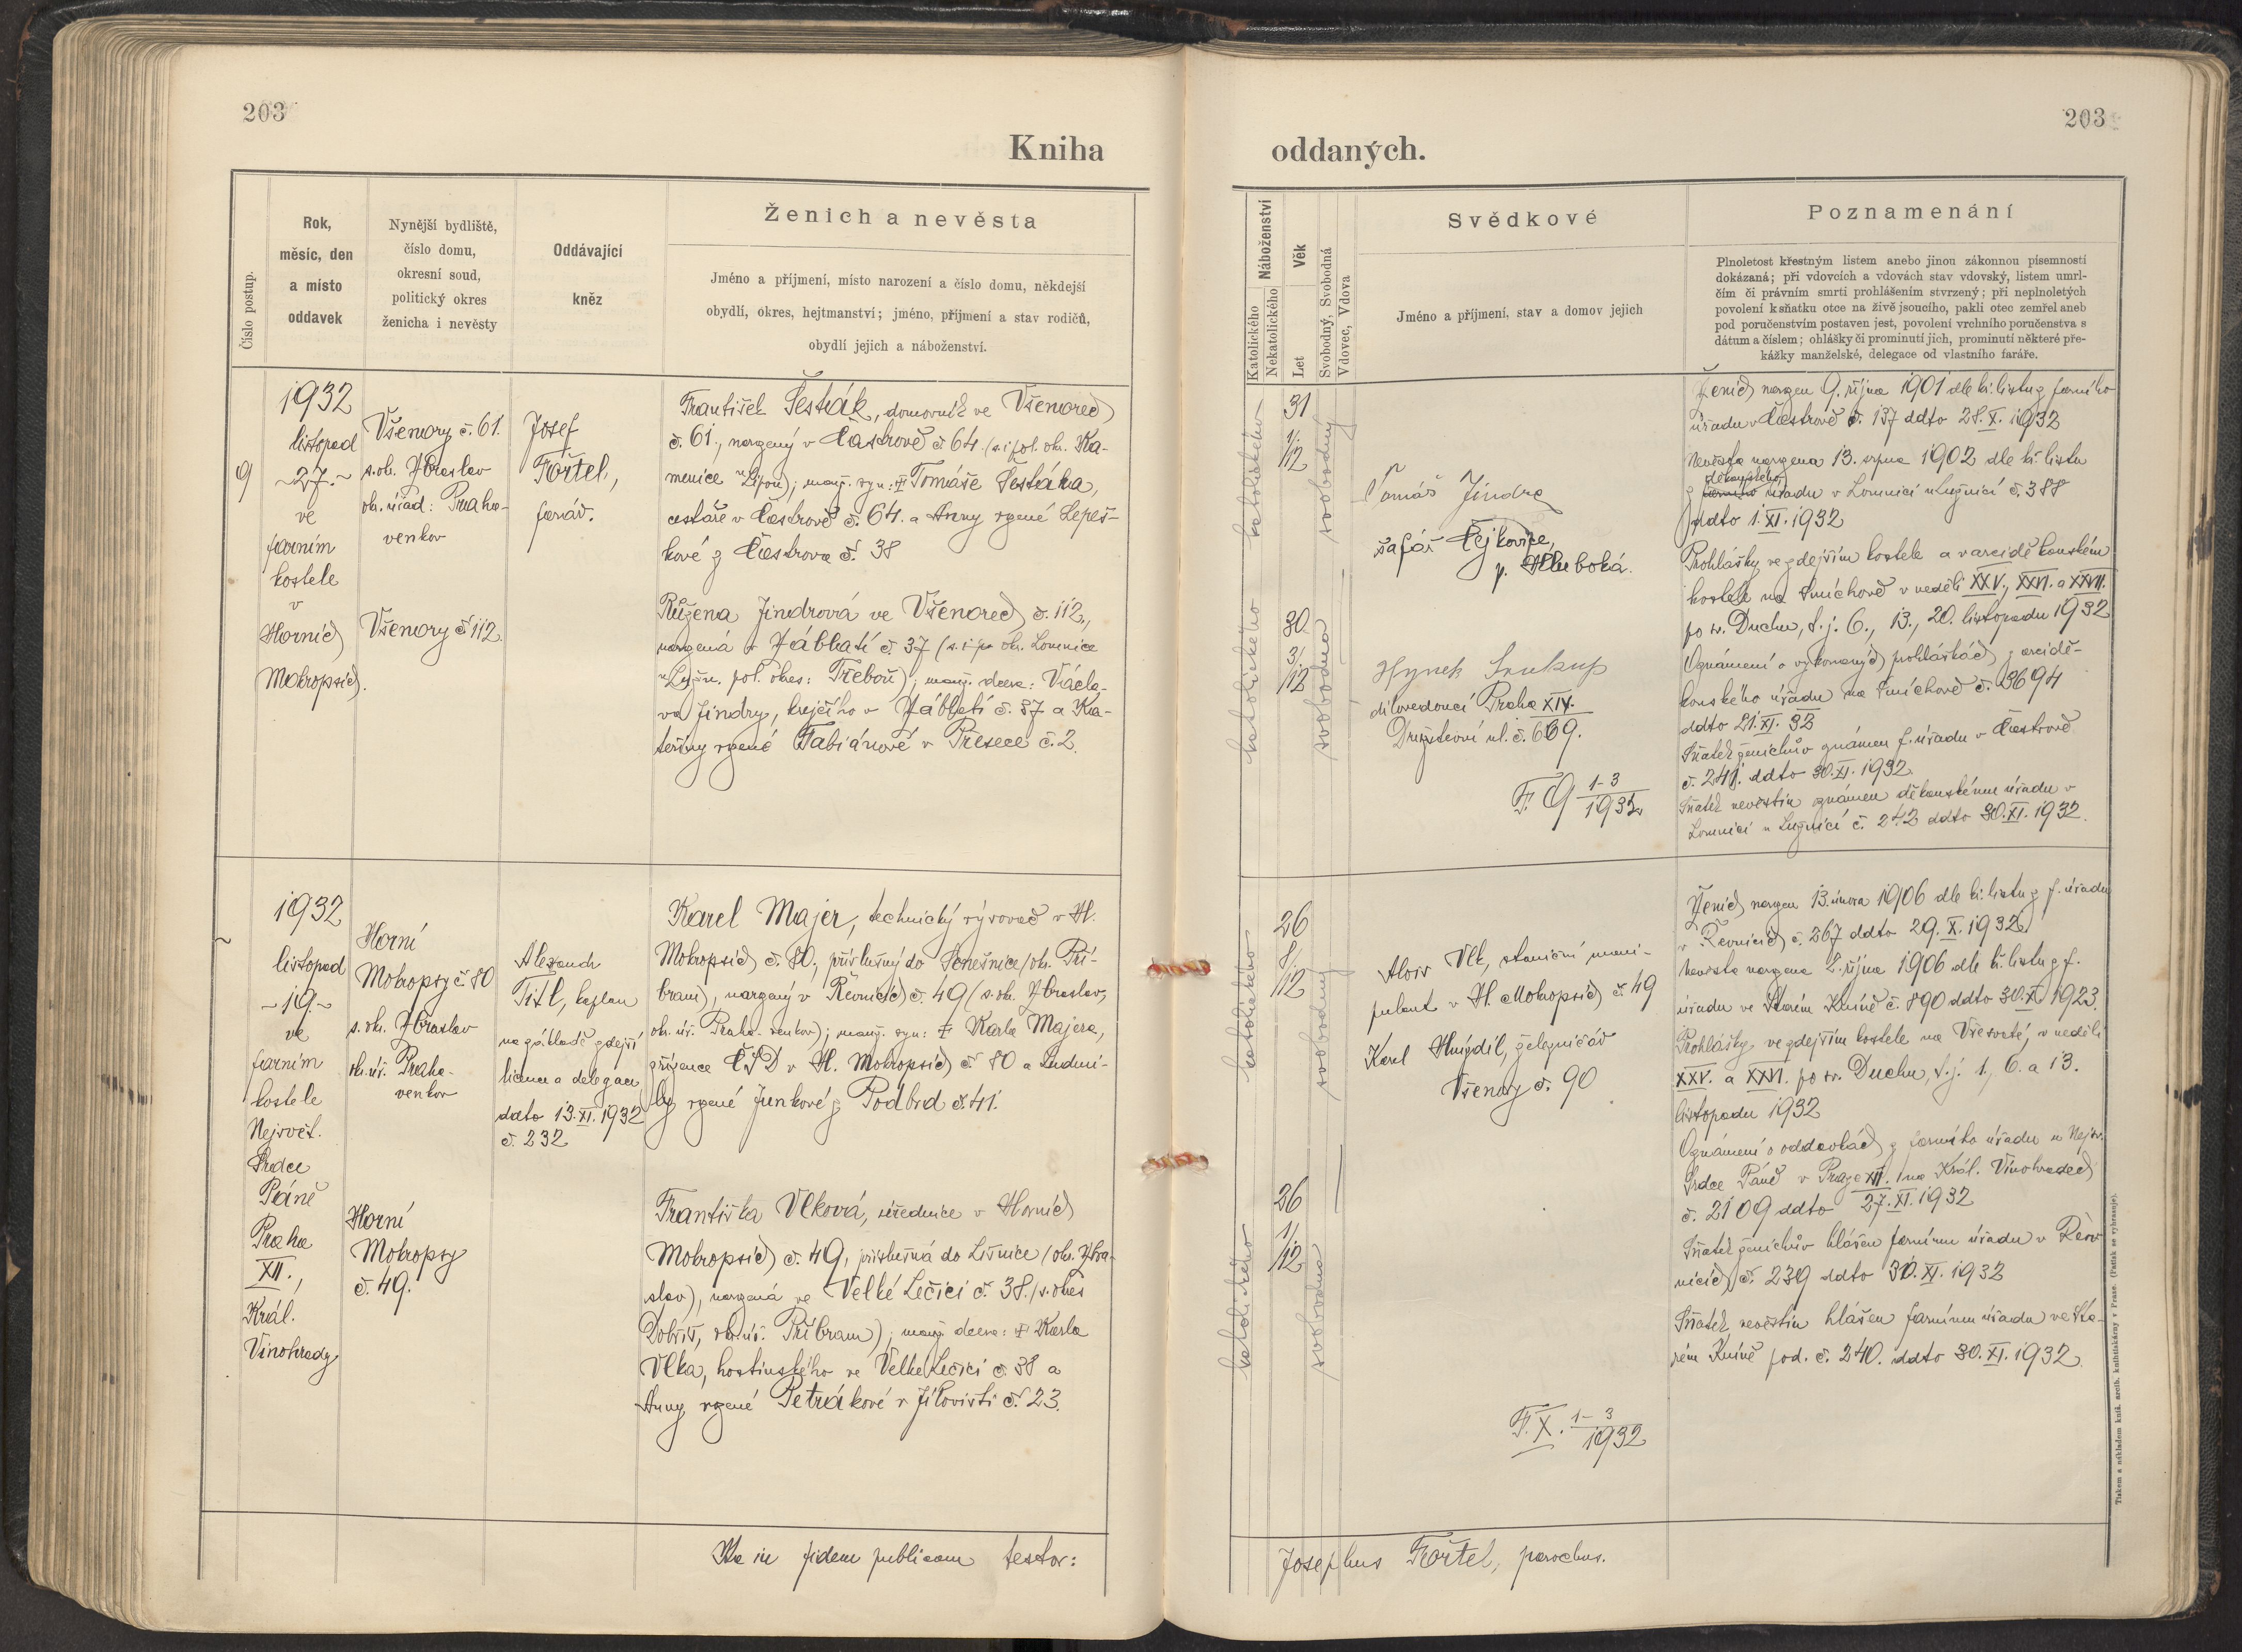 203
Kniha
Číslo postup.
Rok,
měsíc, den
a místo
oddavek
Nynější bydliště,
číslo domu,
okresní soud,
politický okres
ženicha i nevěsty
Oddávající
kněz
Ženich a nevěsta
Jméno a příjmení, místo narození a číslo domu, někdejší
obydlí, okres, hejtmanství; jméno, příjmení a stav rodičů,
obydlí jejich a náboženství.
9
1932
listopad
~27.~
ve
farním
kostele
v
Horních
Mokropsích.
Všenory č. 61.
s. ok. Zbraslav
ok. úřad: Praha-
venkov
Všenory č 112.
Josef
Fořtel,
farář.
František Šesták, domovník ve Všenorech
č. 61., narozený v Častrově č 64. (s. i pol. ok. Ka-
menice n Lipou); manž. syn: Tomáše Šestáka,
cestáře v Častrově č. 64. a Anny rozené Lepeš-
kové z Častrova č. 38
Růžena Jindrová ve Všenorech č. 112.,
narozená v Záblatí č. 37 (s. i po ok. Lomnice
n Luž. pol. okres: Třeboň); manž. dcera: Václa-
va Jindry, krejčího v Záblatí č. 37 a Ka-
teřiny rozené Fabiánové v Přesece č. 2.
1932
listopad
~19.~
ve
farním
kostele
Nejsvět.
Srdce
Páně
Praha
XII.,
Král.
Vinohrady
Horní
Mokropsy č 80
s. ok. Zbraslav
ok. úř. Praha-
venkov
Horní
Mokropsy
č. 49.
Alexandr
Titl, kaplan
na základě zdejší
licence a delegace
ddto 13. XI. 1932
č. 232
Karel Majer, technický v H.
Mokropsích č. 80., příslušný do (ok. Pří-
bram), narozený v Řevnicích č. 49 (s. ok. Zbraslav,
ok. úř. Praha-venkov); manž. syn: Karla Majera,
zřízence ČSD v H. Mokropsích č. 80 a Ludmi-
ly rozené Junkové z Podbrd č. 41.
Františka Vlková, úřednice v Horních
Mokropsích č. 49, příslušná do Líšnice (ok. Zbra-
slav), narozená ve Velké Lečici č. 38. (s. okres
Dobříš, ok. úř. Příbram); manž. dcera: Karla
Vlka, hostinského ve Velké Lečici č. 38 a
Anny rozené Petrákové v Jílovišti č. 23.
Ita in fidem publicam testor:
203
oddaných.
Náboženství
Katolického
Nekatolického
Věk
Let
Svobodný, Svobodná
Vdovec, Vdova
Svědkové
Jméno a příjmení, stav a domov jejich
Poznamenání
Plnoletost křestným listem anebo jinou zákonnou písemností
dokázaná; při vdovcích a vdovách stav vdovský, listem úmrt-
čím či právním smrti prohlášením stvrzený; při neplnoletých
povolení k sňatku otce na živě jsoucího, pakli otec zemřel aneb
pod poručenstvím postaven jest, povolení vrchního poručenstva s
dátum a číslem; ohlášky či prominutí jich, prominutí některé pře-
kážky manželské, delegace od vlastního faráře.
katolického
31
1/12
svobodný
katolického
30
3/12
svobodná
Tomáš Jindra
šafář Čejkovice,
p. Hluboká.
Hynek Soukup
dílovedoucí Praha XIV.
Družstevní ul. č. 669.
F. 9 1-3
1932
Ženich narozen 9. října 1901 dle kř. listu z farního
úřadu v Častrově č. 137 ddto 28. X. 1932
Nevěsta narozena 13. srpna 1902 dle kř. listu
děkanského
z farního úřadu v Lomnici n Lužnicí č. 388
ddto 1. XI. 1932
Prohlášky ve zdejším kostele a v arciděkanském
kostele na Smíchově v neděli XXV., XXVI. a XXVII.
po sv. Duchu, t. j. 6., 13., 20. listopadu 1932
Oznámení o vykonaných prohláškách z arcidě-
kanského úřadu na Smíchově č. 3694
ddto 21. XI. 32
Sňatek ženichův oznámen f. úřadu v Častrově
č. 241. ddto 30. XI. 1932.
Sňatek nevěstin oznámen děkanskému úřadu v
Lomnici n Lužnicí č. 242 ddto 30. XI. 1932.
katolického
26
8/12
svobodný
katolického
26
1/12
svobodná
Alois Vlk, staniční mani-
pulant v H. Mokropsích č. 49
Karel Hnízdil, železničář
Všenory č. 90
F. X. 1-3
1932
Ženich narozen 13. února 1906 dle kř. listu z f. úřadu
v Řevnicích č. 267 ddto 29. X. 1932.
Nevěsta narozena 2. října 1906 dle kř. listu z f.
úřadu ve Starém Kníně č. 890 ddto 30. X. 1923.
Prohlášky ve zdejším kostele na Všesvaté, v neděli
XXV. a XXVI. po sv. Duchu, t. j. 1., 6. a 13.
listopadu 1932
Oznámení o oddavkách z farního úřadu u Nejsv.
Srdce Páně v Praze XII. na Král. Vinohradech
č. 2109 ddto 27. XI. 1932
Sňatek ženichův hlášen farnímu úřadu v Řev-
nicích č. 239 ddto 30. XI. 1932
Sňatek nevěstin hlášen farnímu úřadu ve Sta-
rém Kníně pod. č. 240. ddto 30. XI. 1932.
Josephus Fořtel, parochus.
Tiskem a nákladem kníž. arcib. knihtiskárny v Praze (Patisk se vyhrazuje).